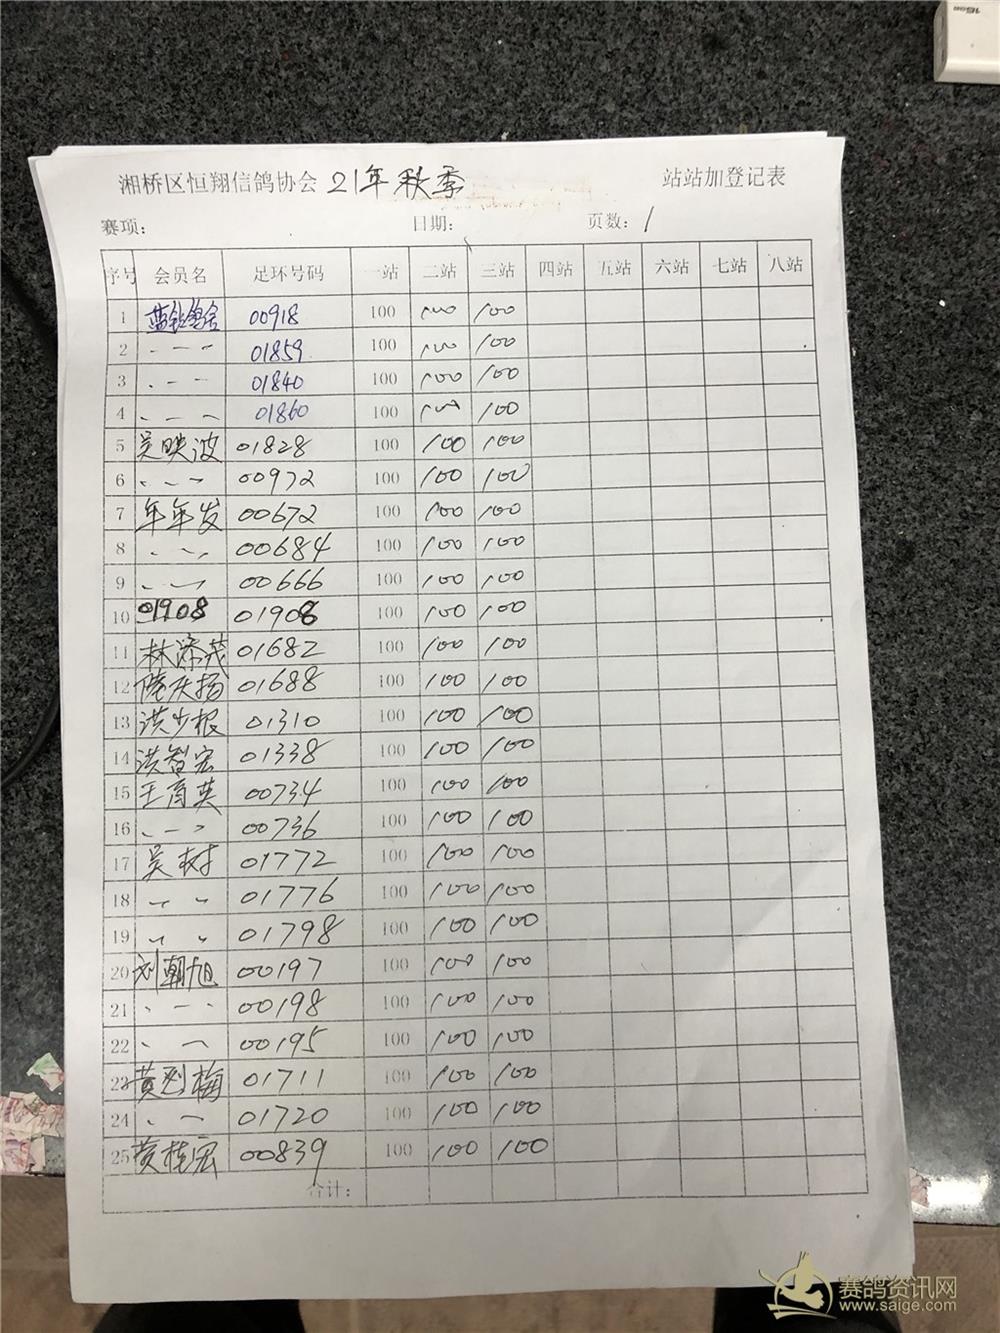 湘桥区恒翔信鸽协会 21年秋季 站站加登记表
赛项: 日期: 页数: 1
序号 会员名 足环号码 一站 二站 三站 四站 五站 六站 七站 八站
1 00918 100 100 100
2 、一一 01859 100 100 100
3 、一一 01840 100 100 100
4 、一一 01860 100 100 100
5 吴映波 01828 100 100 100
6 、一一 00972 100 100 100
7 年年发 00672 100 100 100
8 、一、 00684 100 100 100
9 、一 00666 100 100 100
10 01908 01908 100 100 100
11 林添茂 01682 100 100 100
12 陆庆扬 01688 100 100 100
13 洪少根 01310 100 100 100
14 洪智宏 01338 100 100 100
15 王育英 00734 100 100 100
16 、一、 00736 100 100 100
17 吴树 01772 100 100 100
18 、、 01776 100 100 100
19 、、、 01798 100 100 100
20 刘朝旭 00197 100 100 100
21 、一、 00198 100 100 100
22 、一 00195 100 100 100
23 黄 梅 01711 100 100 100
24 、一 01720 100 100 100
25 黄桂宏 00839 100 100 100
合计:
赛鸽资讯网
www.saige.com